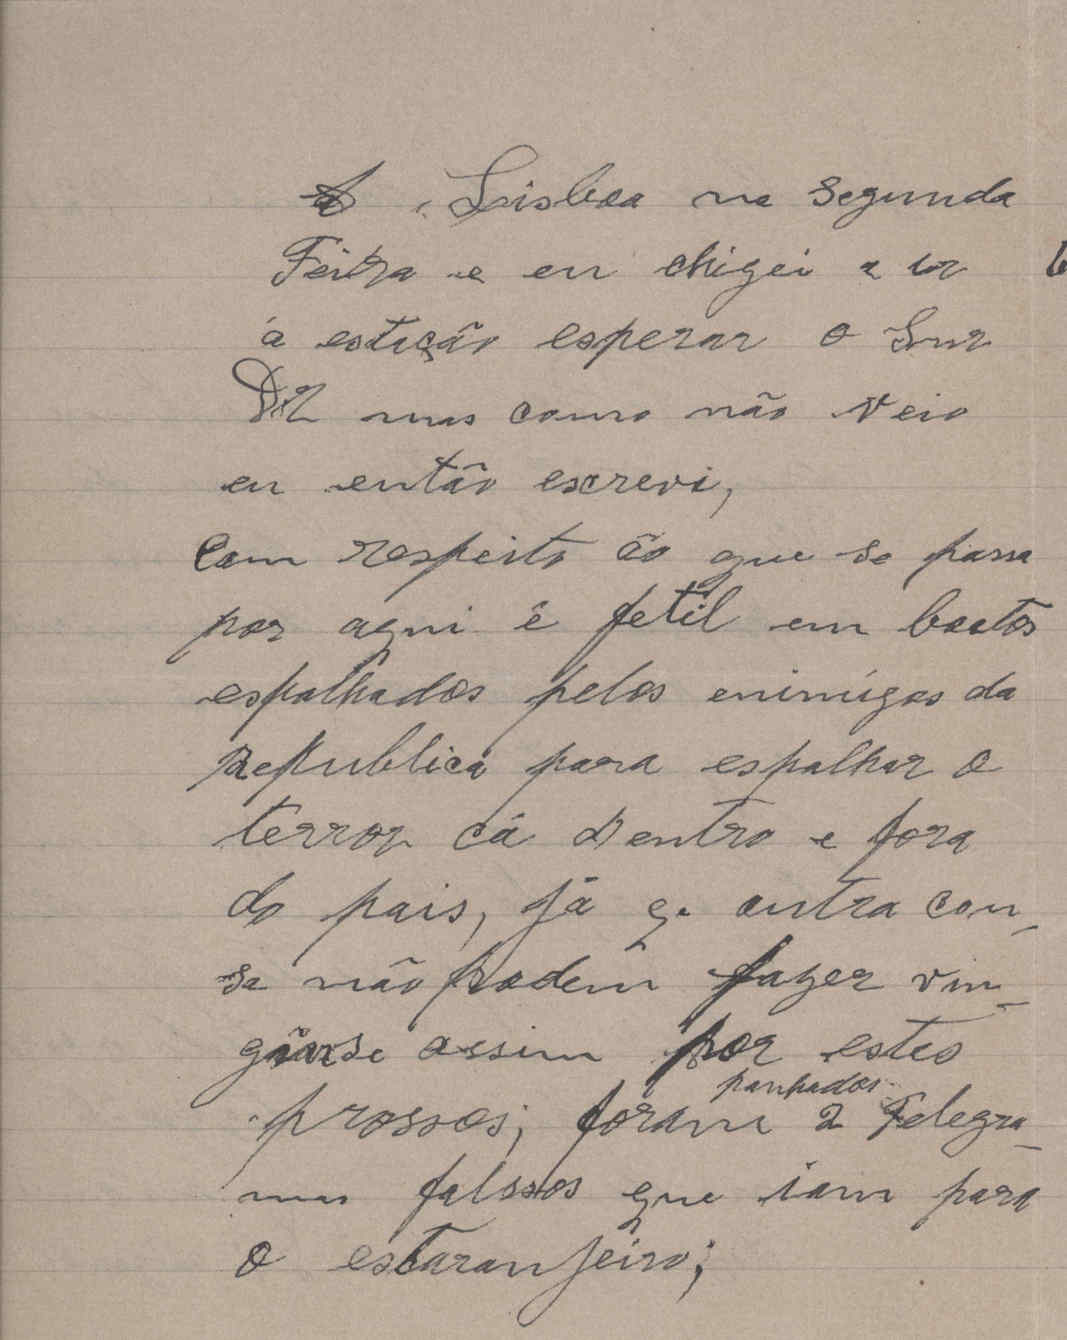 a Lisboa na Segunda
Feira e eu chigei a ir
á estação esperar o Snr
Dr mas como não veio
eu então escrevi,
Com respeito áo que se passa
por aqui é fetil em boatos
espalhados pelos enimigos da
republica para espalhar o
terror cá dentro e fora
do pais, já q. outra cou-
sa não podem fazer vin-
gãose assim por estes
prossos; foram 2 Telegra-
panhados
mas falssos que iam para
o estaranjeiro;